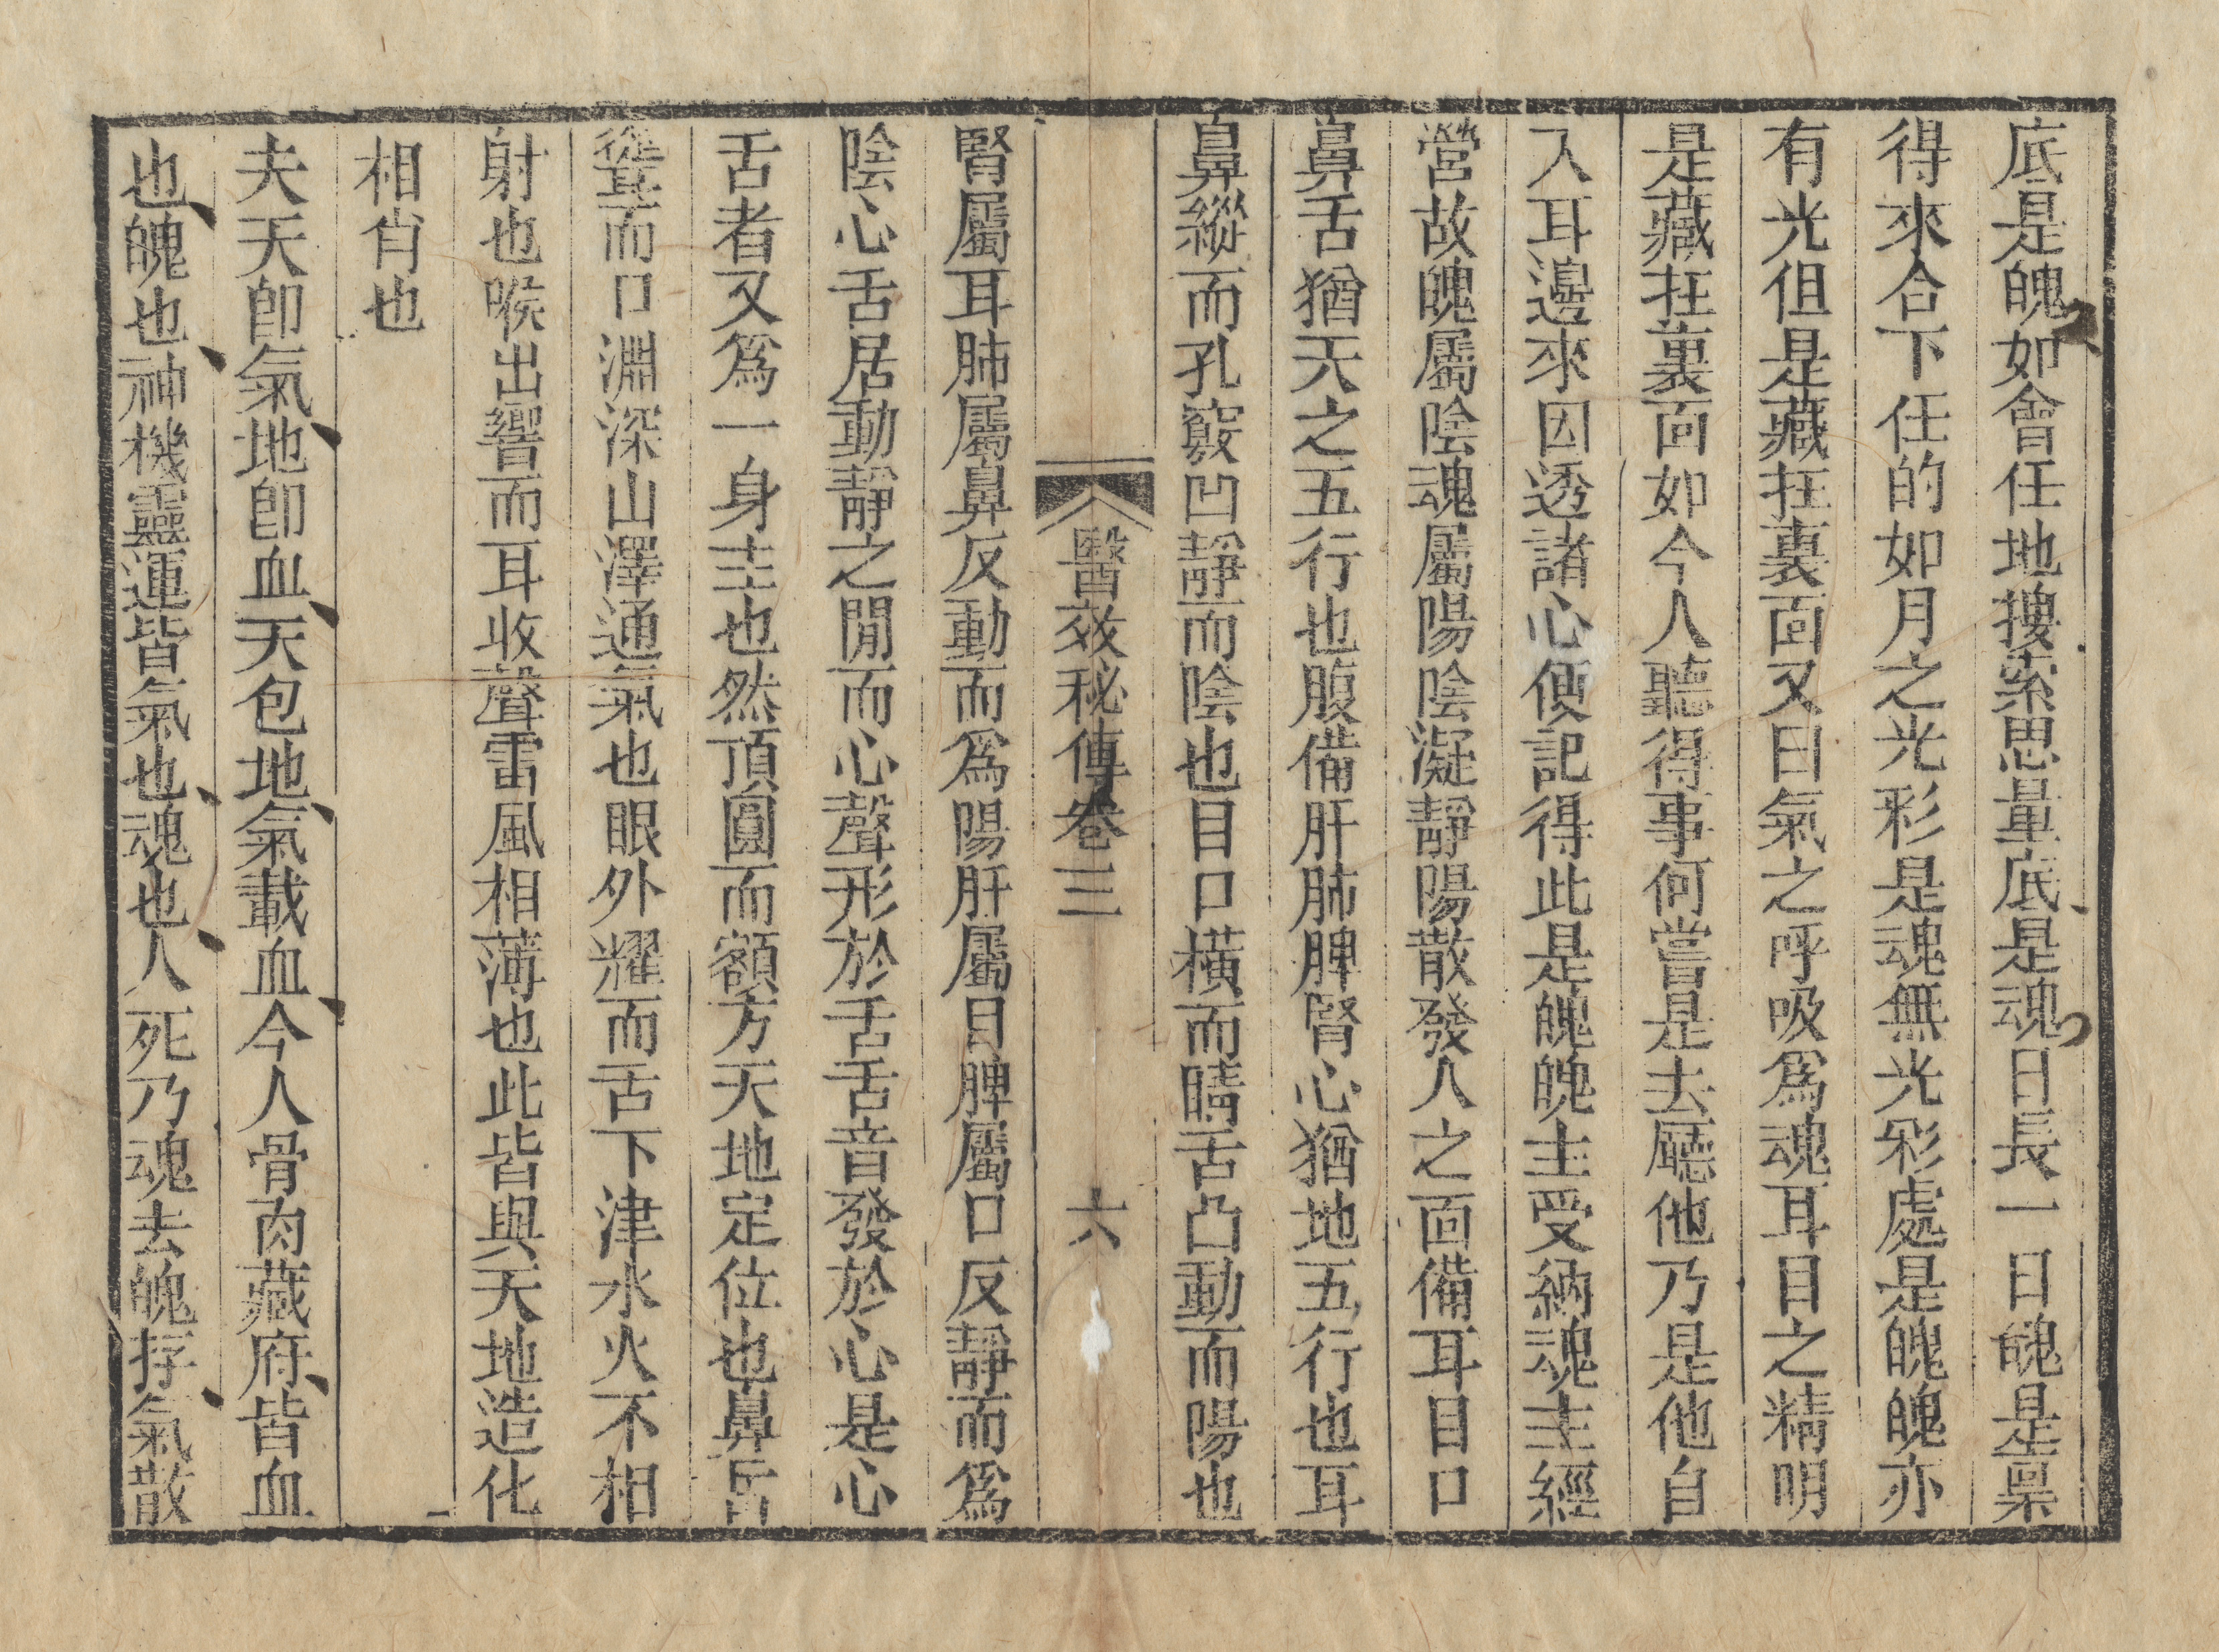 底是魄如會任地摟索思量底是魂日長一日魄是稟
得來合下任的如月之光彩是魂無光彩處是魄魄亦
有光但是藏在裏面又曰氣之呼吸爲魂耳目之精明
是藏在裏面如今人聽得事何嘗是去聽他乃是他自
入耳邊來因透諸心便記得此是魄魄主受納魂主經
營故魄屬陰魂屬陽陰凝靜陽散發人之面備耳目口
鼻舌猶天之五行也腹備肝肺脾腎心猶地五行也耳
鼻縱而孔竅凹靜而陰也目口橫而睛舌凸動而陽也
醫效秘傳卷三 六
腎屬耳肺屬鼻反動而爲陽肝屬目脾屬口反靜而爲
陰心舌居動靜之閒而心聲形於舌舌音發於心是心
舌者又爲一身主也然頂圓而額方天地定位也鼻岳
聳而口淵深山澤通氣也眼外耀而舌下津水火不相
射也喉出響而耳收聲雷風相薄也此皆與天地造化
相肖也
夫天卽氣地卽血天包地氣載血今人骨肉藏府皆血
也魄也神機靈運皆氣也魂也人死乃魂去魄存氣散